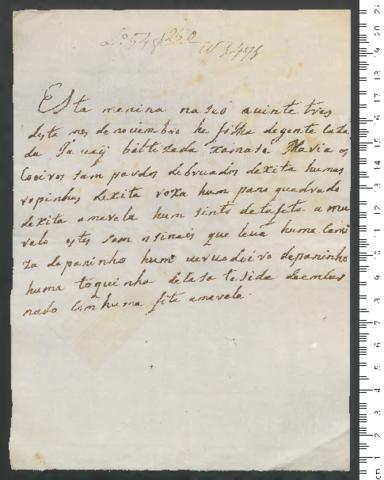 Esta menina nasceo avinte tres
deste mes de novembro he filha de gente caza
da Ja vaij battizada xamase Maria os
Coeiros sam pardos debruados de xita humas
ropinhas de xita roxa hum pano quadrado
de xita amarela hum sinto de tafeta ama
relo estes sam osinais que leva huma cami
za de paninho hum de paninho
huma toquinha de tasa tesida
nado com huma fita amarela.